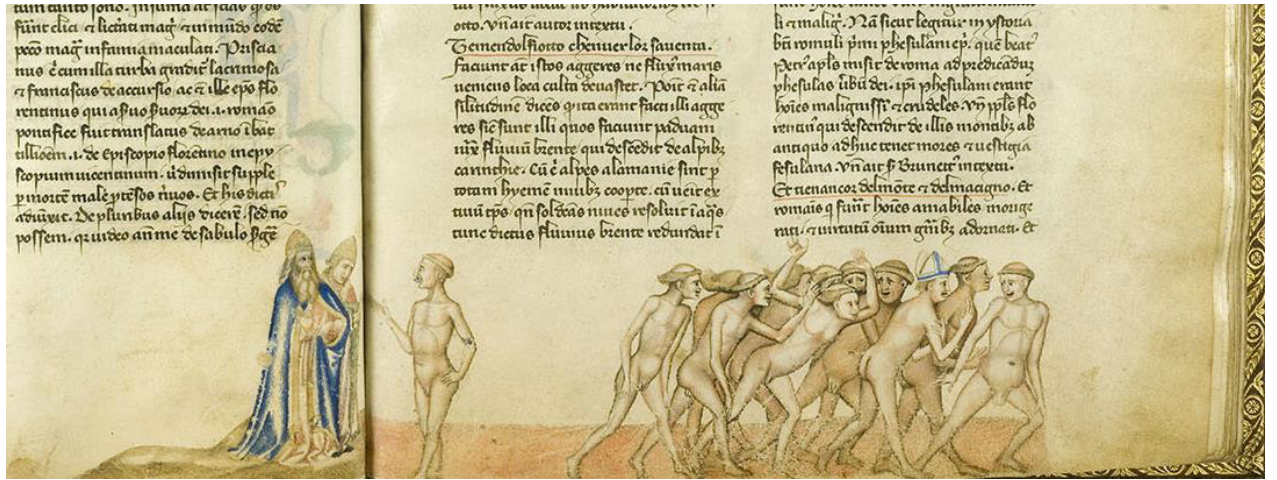 tum tanto sono. In suma at scias q̄ oēs
fūnt clici ⁊ lict̄ati magⁱ ⁊ in mūdo eodē
pecc̄o magⁱ infamia maculati. Priscia
nus ē cum illa turba gradit̄ lacrimosa
⁊ franciscus de accursio ac ⁊ ille ep̄s flo
rentinus qui a ẜuo ẜuoꝝ dei .i. romāo
pontifice fuit translatus de arno ī bac
chillioēm .i. de episcopio florētino in epy
scopium vicentinum. ū dimisit supple
p̱ mortem male ptēsos n̄uos. Et his dictⁱ
adiūxit. De pluribus alijs dicerē. sed nō
possem. qꝛ video an̄ me de sabulo ſ̄gē
otto. Vn̄ ait autor in textu.
Temendo lfiotto chenver lor saventa.
faciunt at̄ istos aggeres ne flux maris
veniens loca culta devastet. Po͞it ⁊ aliā
silitudinē dicēs q̄ ita erant facti illi agge
res sic̄ sunt illi quos faciunt paduani
iux̄ fluviū brente qui descēdit de alpibꝫ
carinthie. Cū ē alpes alamanie sint p̱
totam hyemē nivibꝫ coop̱te. cū veīt ex
tivū tp̄s. qn̄ sol dc̄as nives resolvit ī aq̄s
tunc dictus fluvius brente redundat ī
li ⁊ malig̅. Nā sicut legitur in ystoria
bt̄i romuli p̄mi phesulani ep̄i. quē beatⁱ
Petrⁱ ap̄ls misit de roma ad predicāduꝫ
phesulas ūbū dei. ip̄i phesulani erant
hoīes malignissī ⁊ crudeles. Vn̄ pp̄ls flo
rentinⁱ qui descendit de illis montibꝫ ab
antiquo adhuc tenet mores ⁊ vestigia
fesulana. Vn̄ ait ẜ Brunettⁱ in textu.
Et tienancor delmōte ⁊ delmacigno. Et
romaīs q̄ fuūt hoīes amabiles morige
rati. ⁊ virtutū oīum gn̄ibꝫ adornati. Et